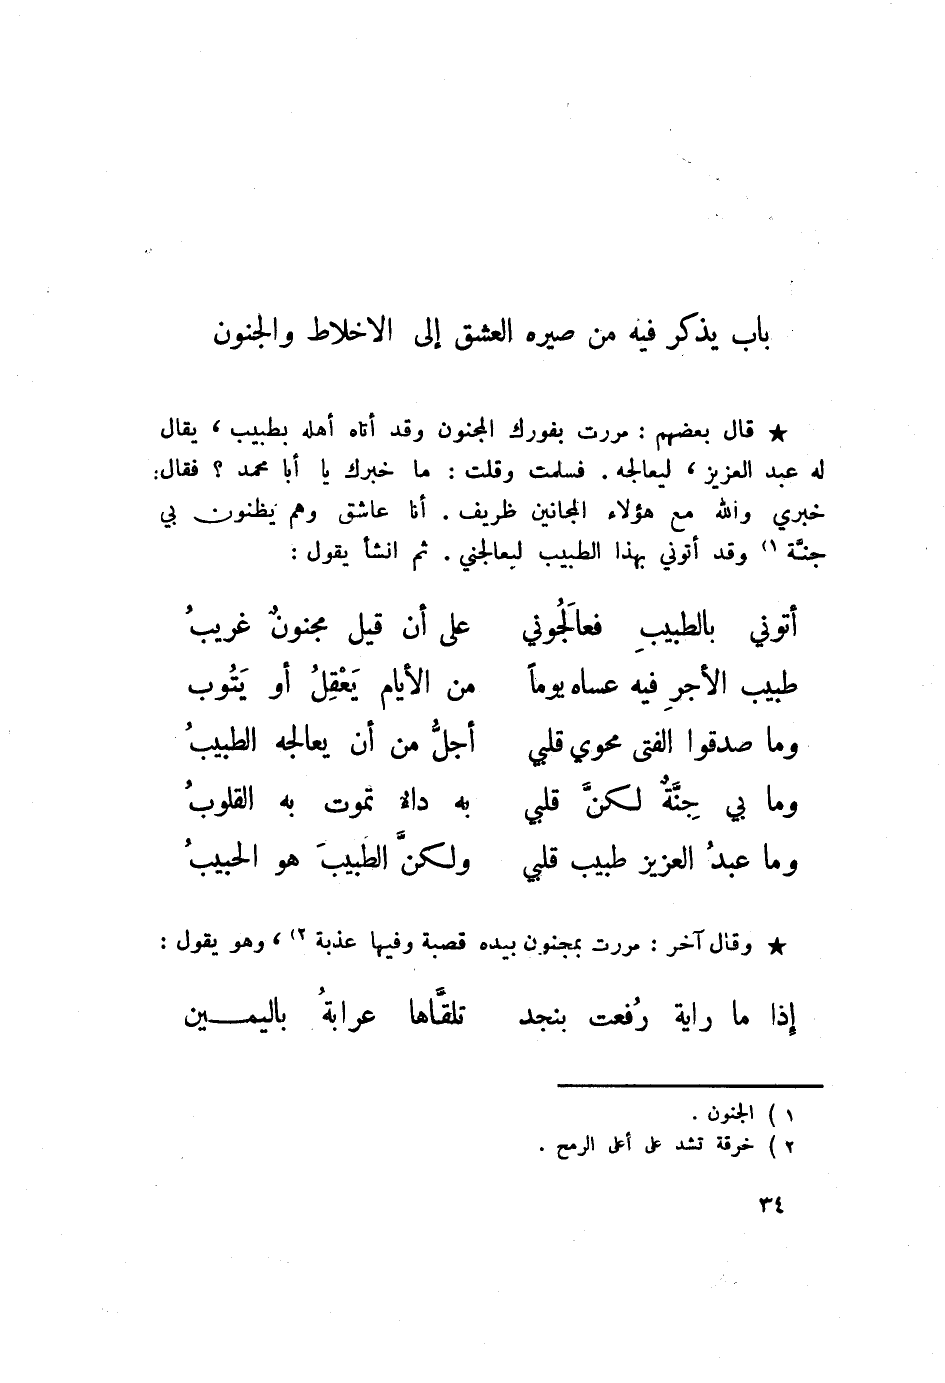 باب يذكر فيه من صيره العشق إلى الاخلاط والجنون
★ قال بعضهم : مررت بفورك المجنون وقد أتاه أهله بطبيب ، يقال
له عبد العزيز ، ليعالجه . فسلمت وقلت : ما خبرك يا أبا محمد ؟ فقال :
خبري والله مع هؤلاء المجانين ظريف . أنا عاشق وهم يظنون بي
جنَّة ١) وقد أتوني بهذا الطبيب ليعالجني . ثم انشأ يقول :
أتوني بالطبيبِ فعالَجُوني على أن قيل مجنونٌ غريبُ
طبيب الأجرِ فيه عساه يوماً من الأيام يَعْقِلُ أو يَتُوب
وما صدقوا الفتى محوي قلبي أجلُّ من أن يعالجه الطبيبُ
وما بي جِنَّةٌ لكنَّ قلبي به داء تموت به القلوبُ
وما عبدُ العزيز طبيب قلبي ولكنَّ الطَبيبَ هو الحبيبُ
★ وقال آخر : مررت بمجنون بيده قصبة وفيها عذبة ٢) ، وهو يقول :
إذا ما راية رُفعت بنجد تلقَّاها عرابةُ باليمــــين
١ ) الجنون .
٢ ) خرقة تشد على أعلى الرمح .
٣٤